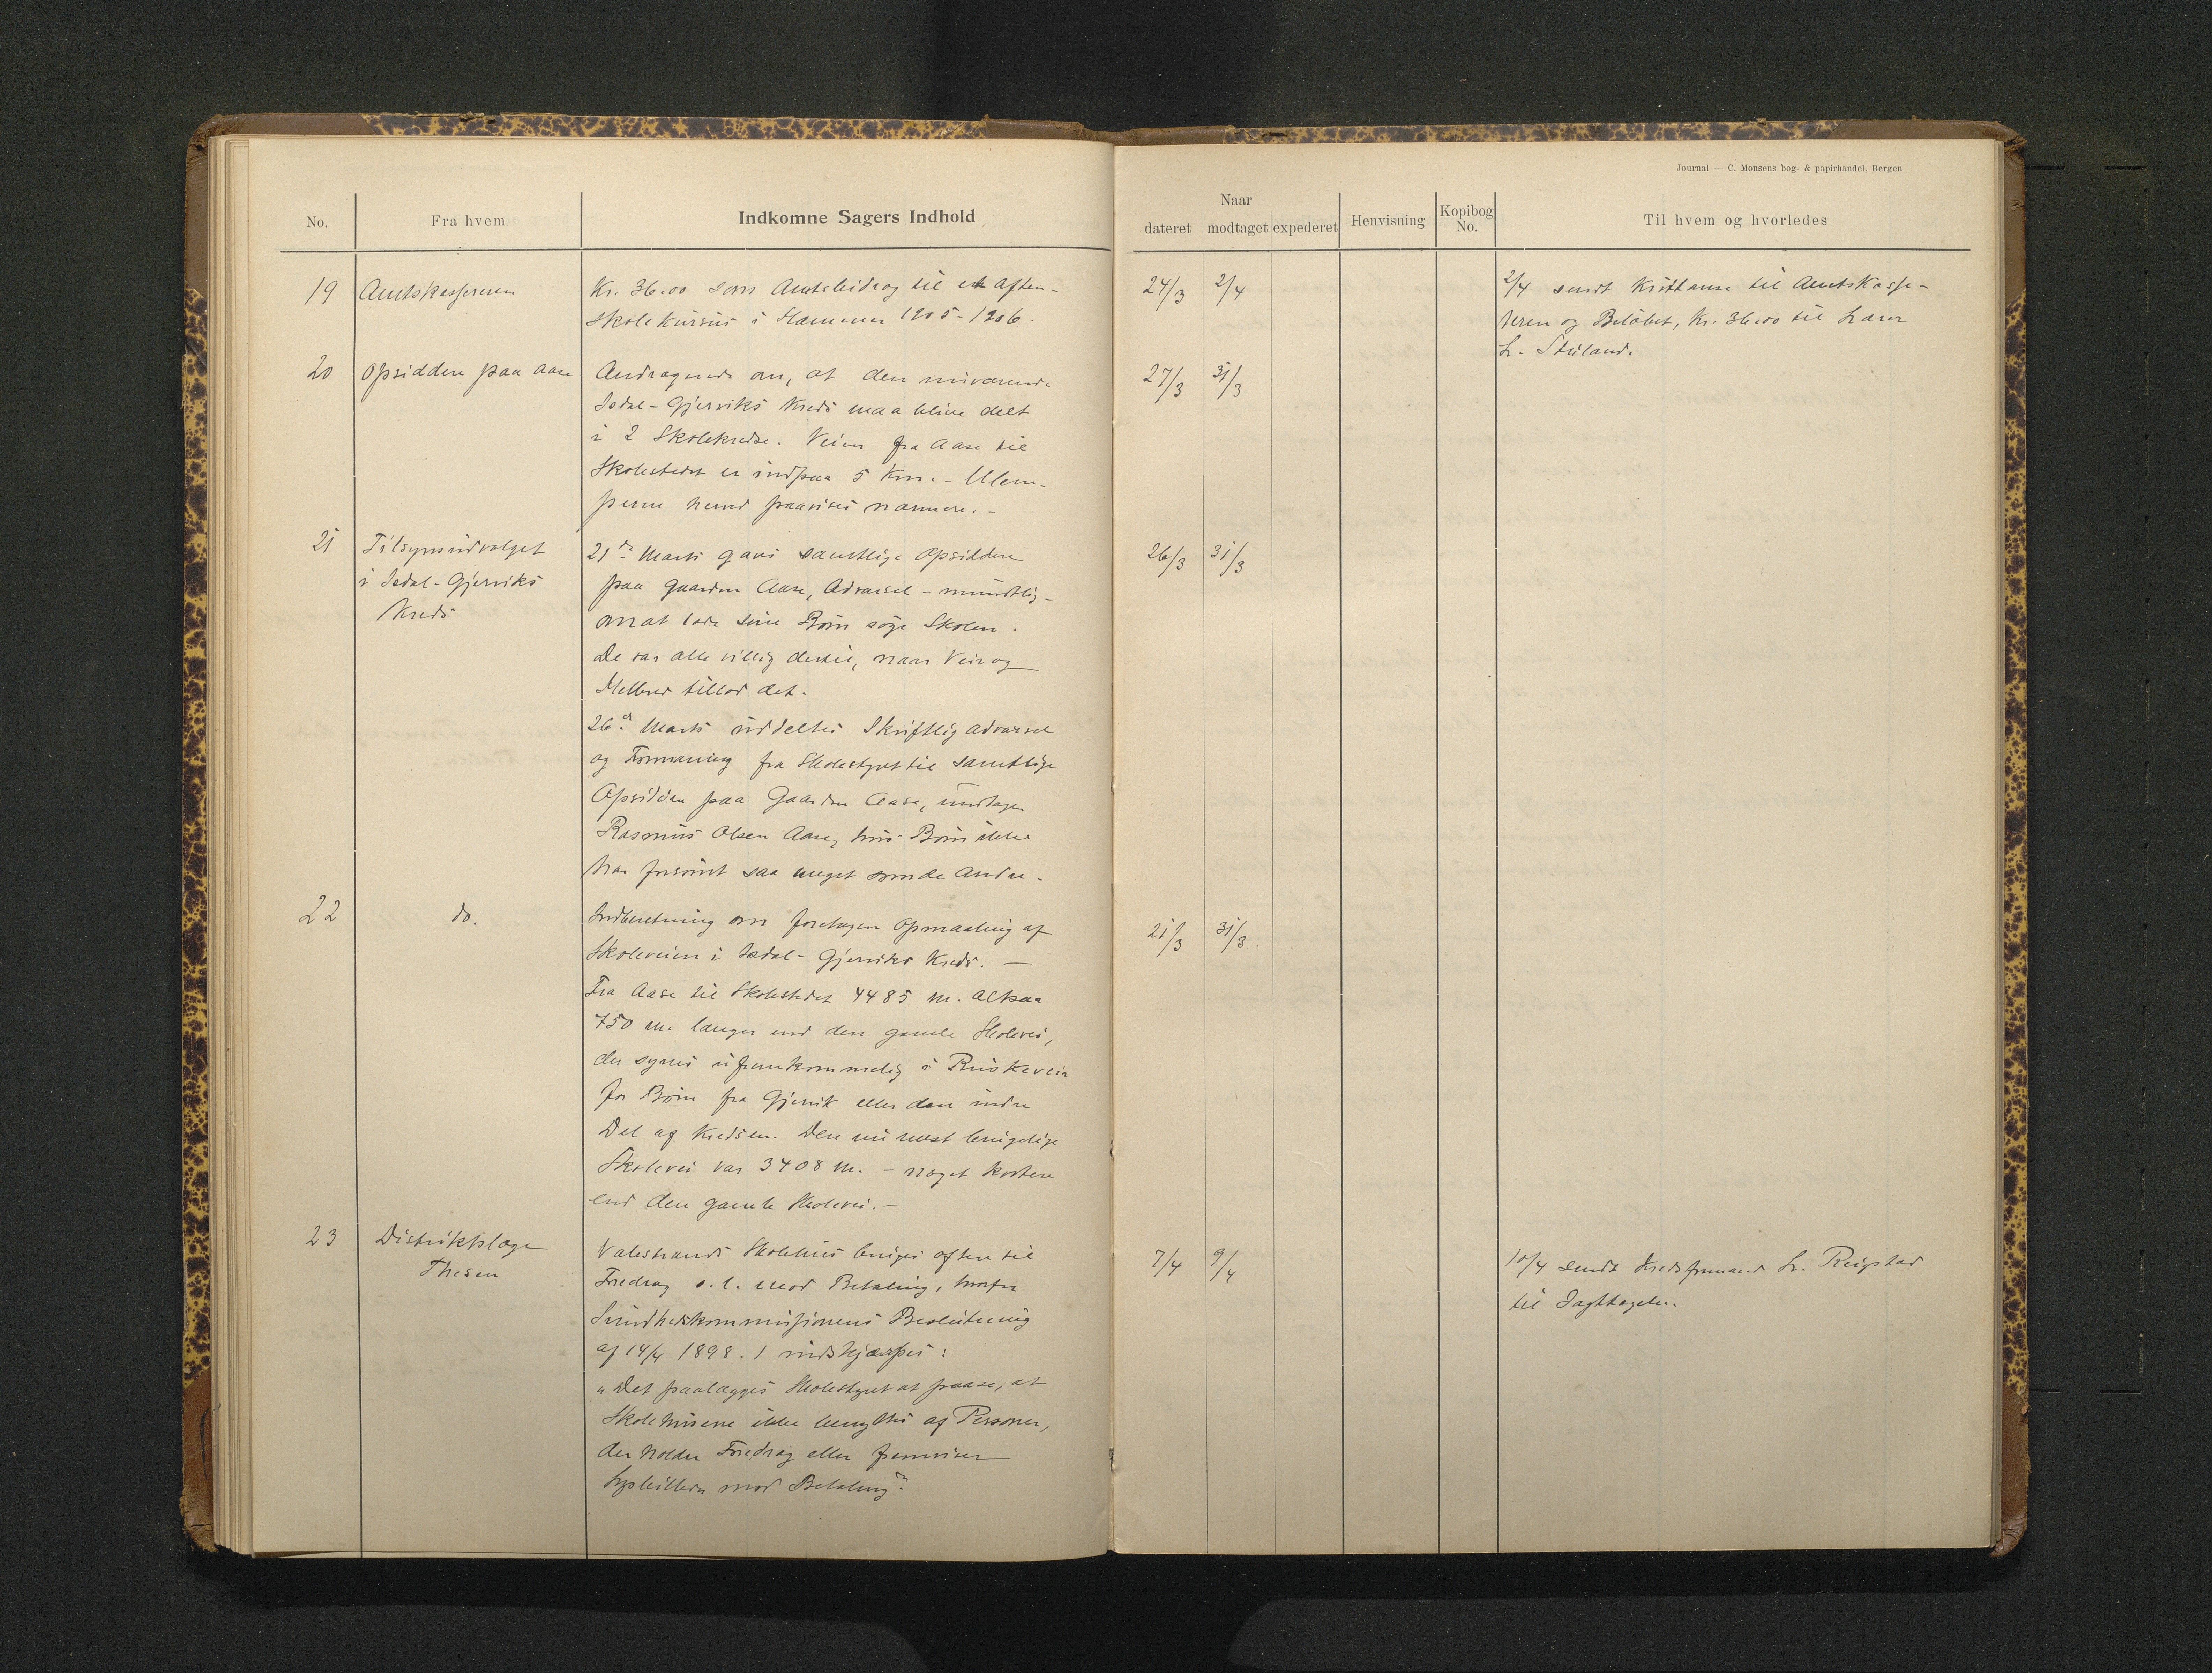 Journal — C. Monsens bog- & papirhandel, Bergen
No.
Fra hvem
Indkomne Sagers Indhold
Naar
dateret modtaget expederet
Henvisning
Kopibog No.
Til hvem og hvorledes
19 Amtskassereren
Kr. 36.00 som Amtsbidrag til et Aften-
skolekursus i Hammer 1905-1906.
24/3 2/4
2/4 sendt Kvittanse til Amtskasse-
reren og Beløbet, Kr. 36.00 til Lærer
L. Stuland.
20 Opsiddere paa Aase
Andragende om, at den nuværende
Isdal-Gjerviks Kreds maa blive delt
i 2 Skolekredse. Veien fra Aase til
Skolestedet er indpaa 5 Km. - Ulem-
perne herved paavises nærmere. -
27/3 31/3
21 Tilsynsudvalget
i Isdal-Gjerviks
Kreds
21de Marts gaves samtlige Opsiddere
paa Gaarden Aase, Advarsel - mundtlig -
om at lade sine Børn søge Skolen.
De var alle villig dertil, naar Veir og
tillod det.
26de Marts uddeltes Skriftlig Advarsel
og Formaning fra Skolestyret til samtlige
Opsiddere paa Gaarden Aase, undtagen
Rasmus Olsen Aase, hvis Børn ikke
har forsømt saa meget som de Andre.
26/3 31/3
22 do.
Indberetning om foretagen Opmaaling af
Skoleveien i Isdal-Gjerviks Kreds. —
Fra Aase til Skolestedet 4485 m. altsaa
750 m. længer end den gamle Skolevei,
der synes ufremkommelig i Ruskeveir
for Børn fra Gjervik eller den indre
Del af Kredsen. Den nu mest brugelige
Skolevei var 3408 m. - noget kortere
end den gamle Skolevei. -
21/3 31/3.
23 Distriktslæge
Thesen
Valestrands Skolehus bruges oftere til
Foredrag o. l. mod Betaling, hvorfor
Sundhedskommissionens Beslutning
af 14/4 1898. 1 indskjærpes:
"Det paalægges Skolestyret at paase, at
Skolehusene ikke benyttes af Personer,
der holder Foredrag eller fremviser
Lysbilleder mod Betaling."
7/4 9/4
10/4 sendt Kredsformand L. Reigstad
til Iagttagelse.